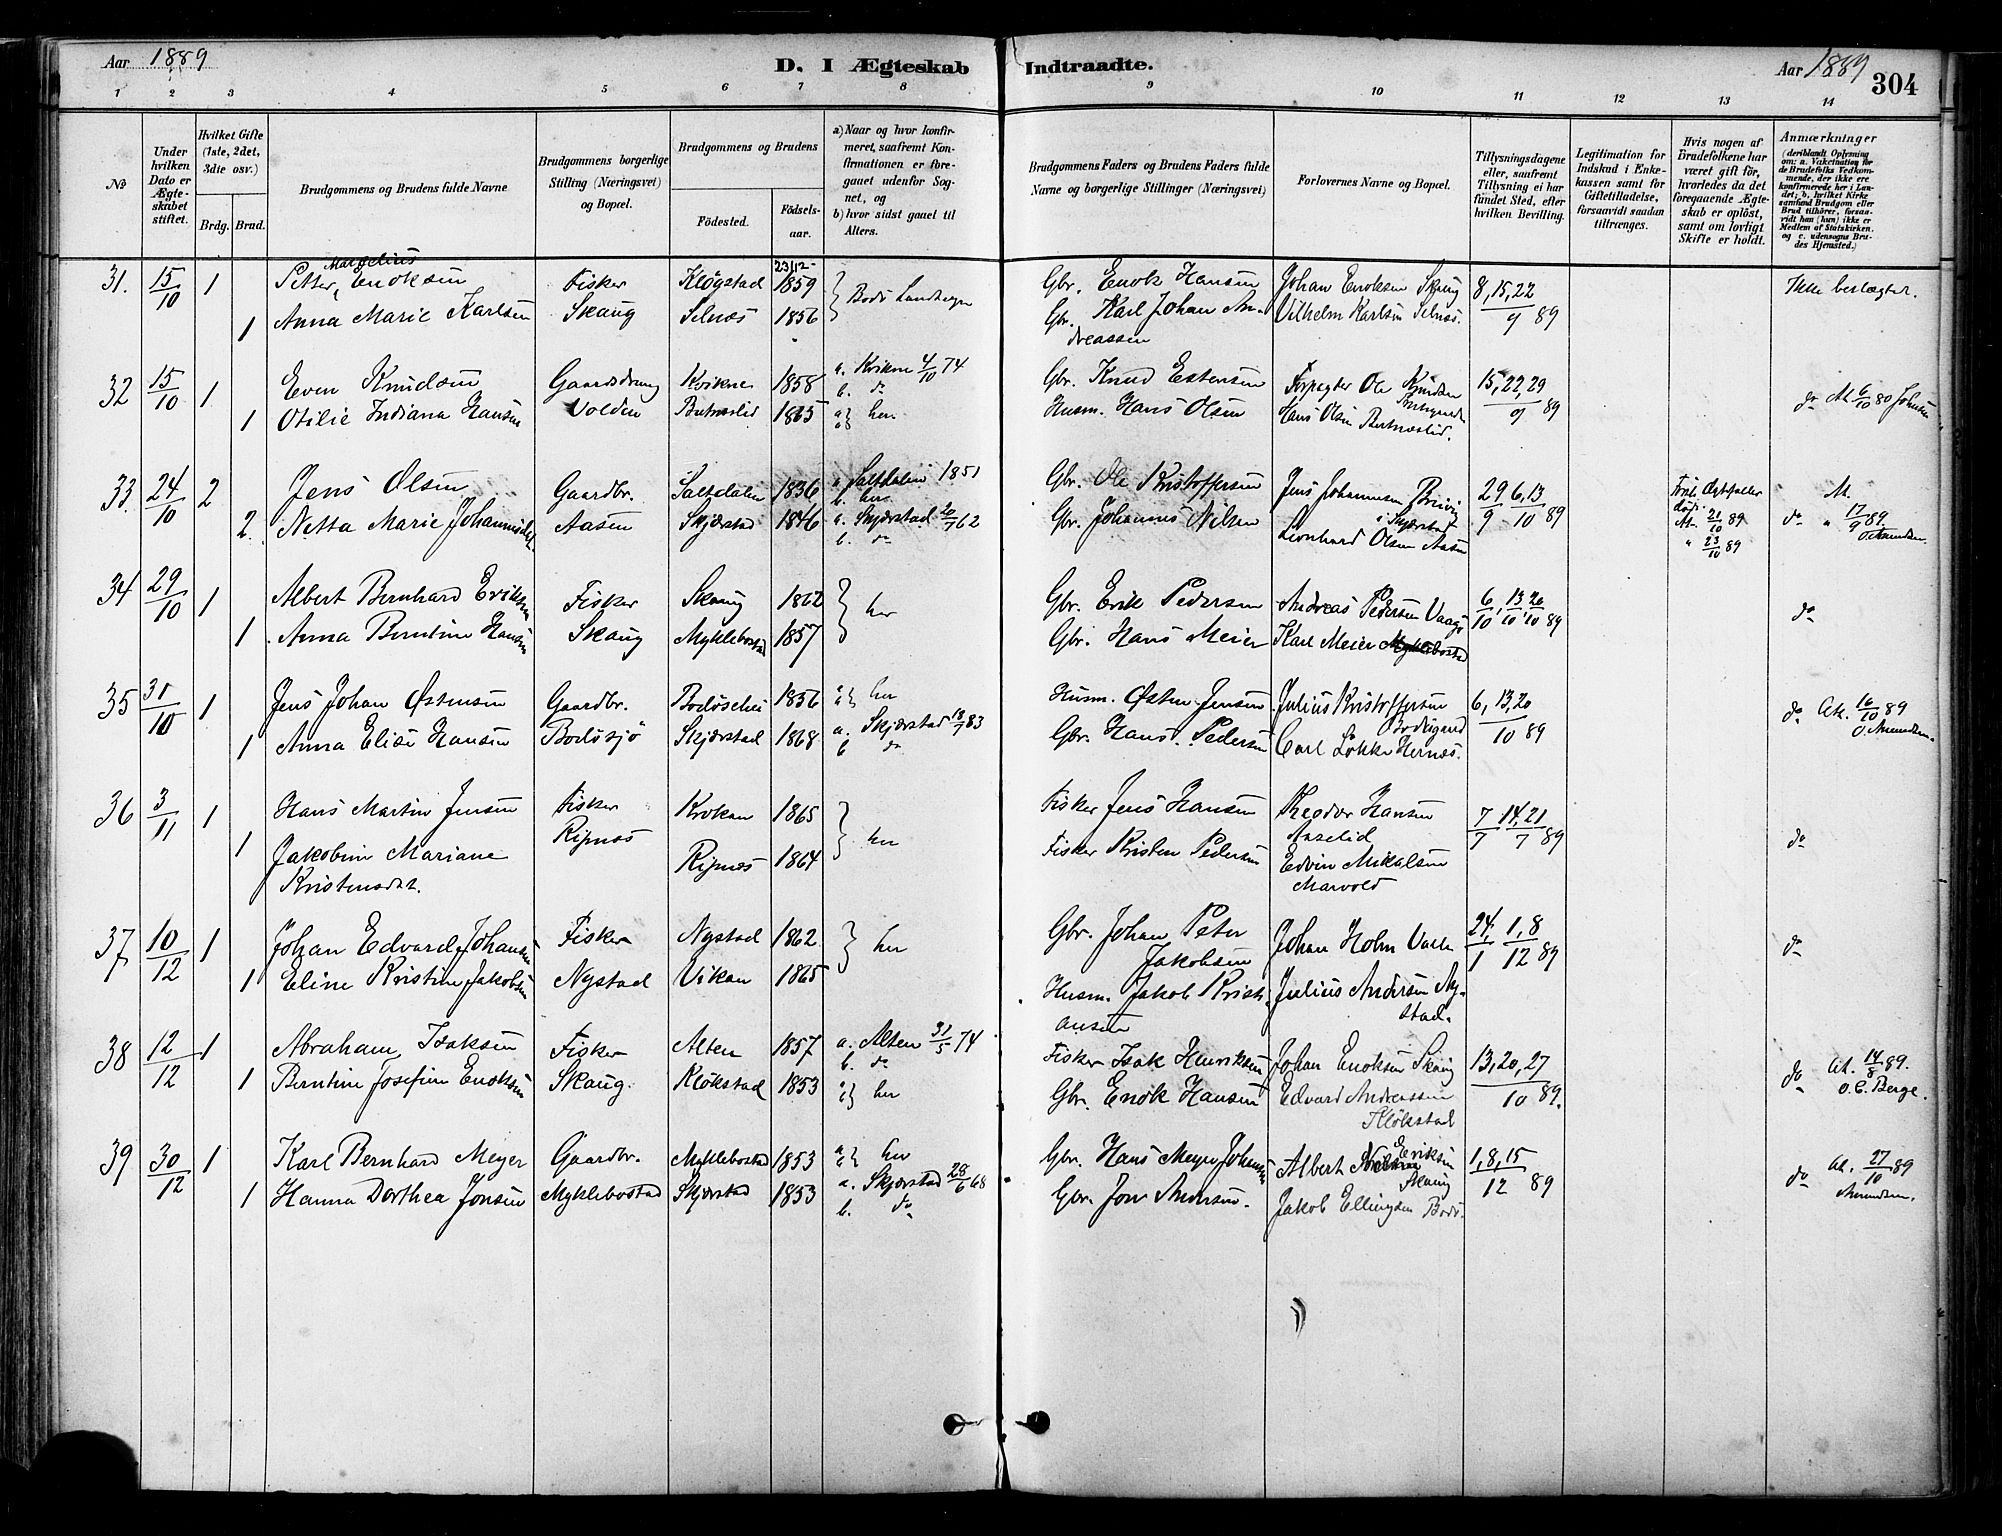 Aar 1889
D. I Ægteskab Indtraadte.
Aar 1889
304
1 2 3 4 5 6 7 8 9 10 11 12 13 14
No
Under hvilken Dato er Ægteskabet stiftet.
Hvilket Gifte (1ste, 2det, 3die osv.)
Brdg. Brud.
Brudgommens og Brudens fulde Navne
Brudgommens borgerlige Stilling (Næringsvei) og Bopæl.
Brudgommens og Brudens
Fødested.
Fødselsaar.
a) Naar og hvor konfirmeret, saafremt Konfirmationen er foregaaet udenfor Sognet, og
b) hvor sidst gaaet til Alters.
Brudgommens Faders og Brudens Faders fulde Navne og borgerlige Stillinger (Næringsvei)
Forlovernes Navne og Bopæl.
Tillysningsdagene eller, saafremt Tillysning ei har fundet Sted, efter hvilken Bevilling.
Legitimation for Indskud i Enkekassen samt for Giftetilladelse, forsaavidt saadan tiltrænges.
Hvis nogen af Brudefolkene har været gift før, hvorledes da det foregaaende Ægteskab er opløst, samt om lovligt Skifte er holdt.
Anmærkninger
(deriblandt Oplysning om: a. Vaccination for de Brudefolks Vedkommende, der ikke ere konfirmerede her i Landet; b. hvilket Kirkesamfund Brudgom eller Brud tilhører, forsaavidt han (hun) ikke er Medlem af Statskirken, og c. udensogns Brudes Hjemsted.)
31. 15/10 1 Petter Margelius Enoksen Fisker Kløgstad 23/12 1859 Bodø Landsogn Gbr. Enok Hansen Johan Enoksen Skaug 8, 15, 22/9 89 Ikke beslægtet.
1 Anna Marie Karlsen Skaug Selnæs 1856 Gbr. Karl Johan Andreassen Vilhelm Karlsen Selnæs.
32 15/10 1 Even Knudsen Gaardsdreng Kvikne 1858 a. Kvikne 4/10 74 b. do Gbr. Knud Estensen Forpagter Ole Knudsen 15, 22, 29/9 89 do At. 6/10 80
1 Otilie Indiana Hansen Volden Bertnæslid 1865 a b her. Husm. Hans Olsen Hans Olsen Bertnæslid.
33. 24/10 2 Jens Olsen Gaardbr. Saltdalen 1836 a. Saltdalen 1851 b. her. Gbr. Ole Kristoffersen Jens Johannesen 29/9 6, 13/10 89 At. 21/10 89 At.
2. Netta Marie Johannesdat. Aasen Skjærstad 1846 a. Skjærstad 20/7 62 b. do Gbr. Johannes Nilsen i Skjærstad Leonhard Olsen Aasen " 23/10 89 do " 17/9 89. O. Amundsen.
34 29/10 1 Albert Bernhard Eriksen Fisker Skaug 1862 her Gbr. Erik Pedersen Andreas Pedersen Vaagø 6/10, 13/10, 20/10 89 do
1. Anna Berntine Hansen Skaug Myklebostad 1857 Gbr. Hans Meier Karl Meier Myklebostad
35 31/10 1 Jens Johan Østensen Gaardbr. Bodøsjøen 1856 a b her Husm. Østen Jensen Julius Kristoffersen Bodøgaard 6, 13, 20/10 89 do At. 16/10 89 O. Amundsen.
1 Anna Elise Hansen Bodøsjø Skjærstad 1868 a. Skjærstad 18/7 83 b do Gbr. Hans Pedersen Carl Løkke Hernæs.
36 3/11 1 Hans Martin Jensen Fisker Krokan 1865 her Fisker Jens Hansen Theodor Hansen Aaselid 7/7 14, 21/7 89 do
1 Jakobine Mariane Kristensdat. Ripnæs Ripnæs 1864 Fisker Kristen Pedersen Edvin Mikalsen Marvold
37 10/12 1 Johan Edvard Johansen Fisker Nystad 1862 her Gbr. Johan Peter Jakobsen Johan Holm Valle 24/1 1, 8/12 89 do
1 Eline Kristine Jakobsen Nystad Vikan 1865 Husm. Jakob Kristiansen Julius Andersen Nystad.
38 12/12 1 Abraham Isaksen Fisker Alten 1857 a. Alten 31/5 74 b. do Fisker Isak Henriksen Johan Enoksen Skaug 13, 20, 27/10 89. do At. 14/8 89. O. C. Berge.
1 Berntine Josefine Enoksen Skaug. Kløkstad 1853 a b her Gbr. Enok Hansen Edvard Andreassen Kløkstad
39 30/12 1 Karl Bernhard Meyer Gaardbr. Myklebostad 1853 a b her Gbr. Hans Meyer Johansen Albert Eriksen Skaug 1, 8, 15/12 89 do At. 27/10 89 Amundsen.
1 Hanna Dorthea Jonsen Myklebostad Skjærstad 1853 a. Skjærstad 28/6 68 b. do Gbr. Jon Andersen. Jakob Ellingsen Bodø.